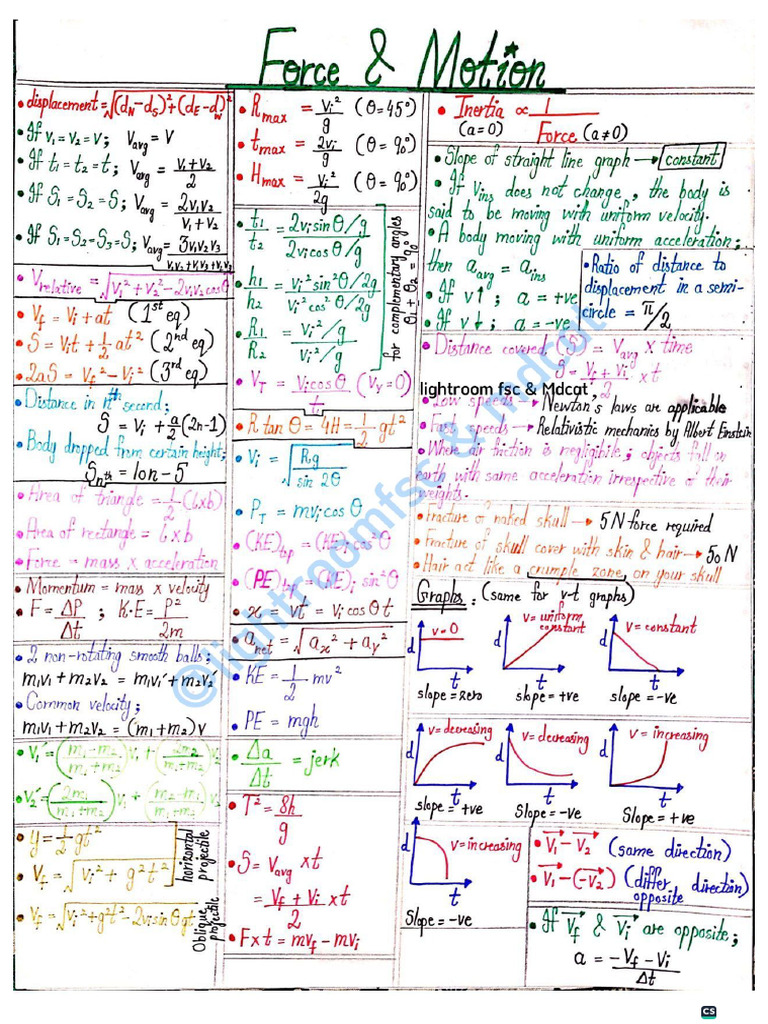 Force & Motion
• displacement = √(d_N - d_S)² + (d_E - d_W)²
• If v₁ = v₂ = v; V_avg = V
• If t₁ = t₂ = t; V_avg = (V₁ + V₂)/2
• If S₁ = S₂ = S; V_avg = 2V₁V₂/(V₁ + V₂)
• If S₁ = S₂ = S₃ = S; V_avg = 3V₁V₂V₃/(V₁V₂ + V₂V₃ + V₃V₁)
• V_relative = √V₁² + V₂² - 2V₁V₂ cosθ
• V_f = Vi + at (1st eq)
• S = Vit + 1/2 at² (2nd eq)
• 2aS = V_f² - Vi² (3rd eq)
• Distance in nth second;
S = Vi + a/2 (2n-1)
• Body dropped from certain height;
S_nth = 10n - 5
• Area of triangle = 1/2 (l×b)
• Area of rectangle = l × b
• Force = mass × acceleration
• Momentum = mass × velocity
• F = ΔP/Δt ; K·E = P²/2m
• 2 non-rotating smooth balls;
m₁v₁ + m₂v₂ = m₁v₁' + m₂v₂'
• Common velocity;
m₁v₁ + m₂v₂ = (m₁ + m₂)v
• V₁' = (m₁ - m₂/m₁ + m₂) v₁ + (2m₂/m₁ + m₂) v₂
• V₂' = (2m₁/m₁ + m₂) v₁ + (m₂ - m₁/m₁ + m₂) v₂
• y = 1/2 gt²
• V_f = √Vi² + g²t²
horizontal projectile
• V_f = √Vi² + g²t² - 2vi sinθ gt
Oblique projectile
• R_max = Vi²/g (θ = 45°)
• t_max = 2vi/g (θ = 90°)
• H_max = Vi²/2g (θ = 90°)
• t₁/t₂ = 2vi sinθ/g / 2vi cosθ/g
• h₁/h₂ = Vi² sin²θ/2g / Vi² cos²θ/2g
• R₁/R₂ = Vi²/g / Vi²/g
for complementary angles
θ₁ + θ₂ = 90°
• V_T = Vi cosθ/t (V_y = 0)
• R tan θ = 4H = 1/2 gt²
• Vi = √Rg/sin 2θ
• P_T = mvi cosθ
• (KE)_hp = (KE)i cos²θ
• (PE)_hp = (KE)i sin²θ
• x = vt = vi cosθ t
• a_net = √a_x² + a_y²
• KE = 1/2 mv²
• PE = mgh
• Δa/Δt = jerk
• T² = 8h/g
• S = V_avg × t
= V_f + Vi/2 × t
• F × t = mv_f - mvi
• Inertia ∝ 1/Force
(a = 0) (a ≠ 0)
• Slope of straight line graph → constant
• If V_ins does not change, the body is
said to be moving with uniform velocity.
• A body moving with uniform acceleration;
then a_avg = a_ins
• If V↑ ; a = +ve
• If V↓ ; a = -ve
• Ratio of distance to
displacement in a semi-
circle = π/2
• Distance covered, (S) = V_avg × time
S = V_f + Vi/2 × t
lightroom fsc & Mdcat
• Low speeds → Newton's laws are applicable
• Fast speeds → Relativistic mechanics by Albert Einstein
• Where air friction is negligible; objects fall on
earth with same acceleration irrespective of their
weights.
• Fracture of naked skull → 5N force required
• fracture of skull cover with skin & hair → 50 N
• Hair act like a crumple zone, on your skull
Graphs : (same for v-t graphs)
d v=0 t
slope = zero
d v = uniform constant t
slope = +ve
d v = constant t
slope = -ve
d v = decreasing t
slope = +ve
d v = decreasing t
Slope = -ve
d v = increasing t
Slope = +ve
d v = increasing t
Slope = -ve
• V₁ - V₂ (same direction)
• V₁ - (-V₂) (differ direction)
opposite
• If V_f & Vi are opposite;
a = -V_f - Vi/Δt
©lightroomfsc & mdcat
CS